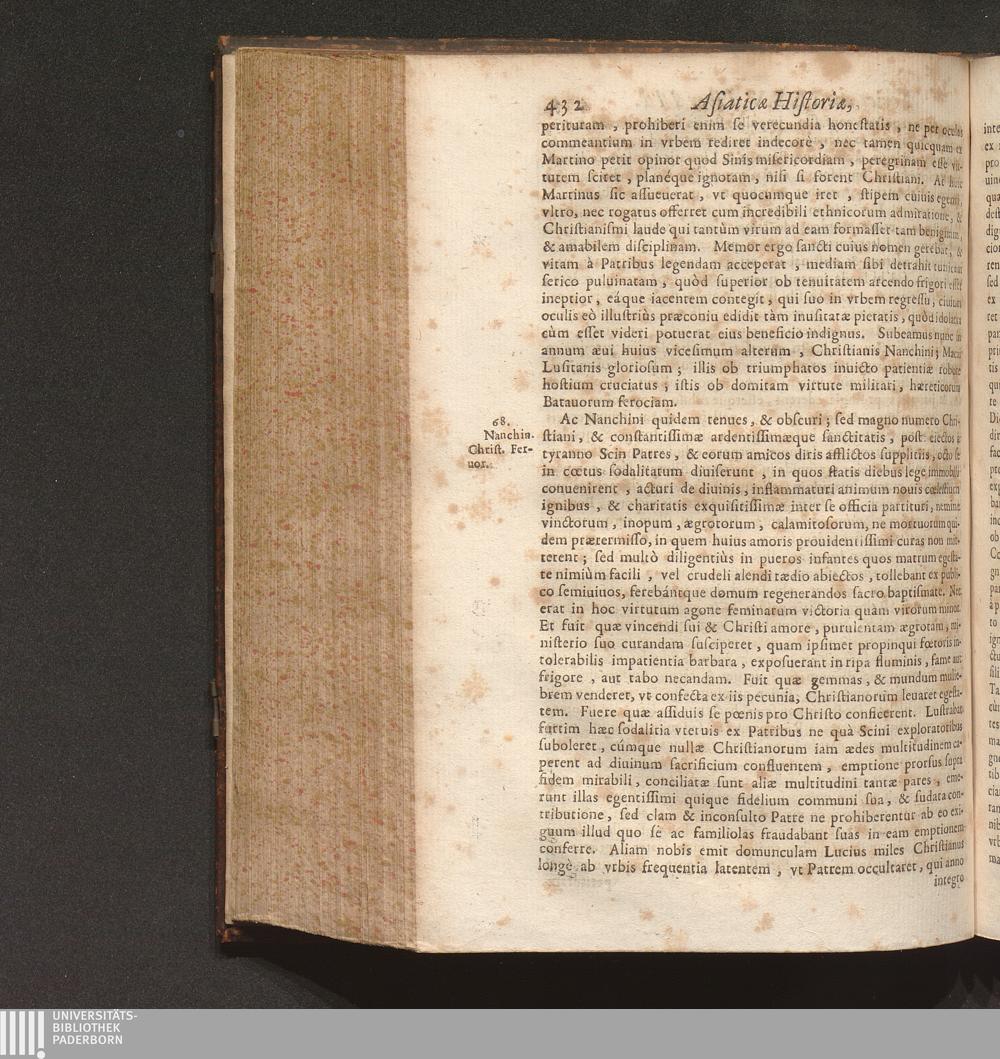 432 Aſiaticæ Hiſtoriæ,
perituram , prohiberi enim ſe verecundia honeſtatis , ne per oculos
commeantium in vrbem rediret indecorè , nec tamen quicquam ex
Martino petit opinor quod Sinis miſericordiam , peregrinam eſſe vir-
tutem ſciret , planéque ignotam, niſi ſi forent Chriſtiani. At hunc
Martinus ſic aſſueuerat , vt quocumque iret , ſtipem cuiuis egenti,
vltro, nec rogatus offerret cum incredibili ethnicorum admiratione, &
Chriſtianiſmi laude qui tantùm virum ad eam formaſſet tam benignam,
& amabilem diſciplinam. Memor ergo ſancti cuius nomen gerebat, &
vitam à Patribus legendam acceperat , mediam ſibi detrahit tunicam
ſerico puluinatam , quòd ſuperior ob tenuitatem arcendo frigori eſſet
ineptior, eáque iacentem contegit, qui ſuo in vrbem regreſſu, ciuium
oculis eò illuſtriùs præconiu edidit tàm inuſitatæ pietatis, quòd idolatra
cùm eſſet videri potuerat eius beneficio indignus. Subeamus nunc in
annum æui huius viceſimum alterum , Chriſtianis Nanchini; Macai
Luſitanis glorioſum ; illis ob triumphatos inuicto patientiæ robore
hoſtium cruciatus ; iſtis ob domitam virtute militari, hæreticorum
Batauorum ferociam.
68.
Nanchin.
Chriſt. Fer-
uor.
Ac Nanchini quidem tenues, & obſcuri ; ſed magno numero Chri-
ſtiani, & conſtantiſſimæ ardentiſſimæque ſanctitatis , poſt eiectos à
tyranno Scin Patres, & eorum amicos diris afflictos ſuppliciis, octo ſe
in cœtus ſodalitatum diuiſerunt , in quos ſtatis diebus lege immobili
conuenirent , acturi de diuinis, inflammaturi animum nouis cœleſtium
ignibus , & charitatis exquiſitiſſimæ inter ſe officia partituri, nemine
vinctorum, inopum, ægrotorum, calamitoſorum, ne mortuorum qui-
dem prætermiſſo, in quem huius amoris prouidentiſſimi curas non mit-
terent ; ſed multò diligentiùs in pueros infantes quos matrum egeſta-
te nimiùm facili , vel crudeli alendi tædio abiectos , tollebant ex publi-
co ſemiuiuos, ferebántque domum regenerandos ſacro baptiſmate. Nec
erat in hoc virtutum agone feminarum victoria quàm virorum minor.
Et fuit quæ vincendi ſui & Chriſti amore, purulentam ægrotam, mi-
niſterio ſuo curandam ſuſciperet , quam ipſimet propinqui fœtoris in-
tolerabilis impatientia barbara , expoſuerant in ripa fluminis, fame aut
frigore , aut tabo necandam. Fuit quæ gemmas , & mundum mulie-
brem venderet, vt confecta ex iis pecunia, Chriſtianorum leuaret egeſta-
tem. Fuere quæ aſſiduis ſe pœnis pro Chriſto conficerent. Luſtrabat
furtim hæc ſodalitia vteruis ex Patribus ne quà Scini exploratoribus
ſuboleret, cúmque nullæ Chriſtianorum iam ædes multitudinem ca-
perent ad diuinum ſacrificium confluentem , emptione prorſus ſupra
fidem mirabili, conciliatæ ſunt aliæ multitudini tantæ pares , eme-
runt illas egentiſſimi quique fidelium communi ſua, & ſudata con-
tributione, ſed clam & inconſulto Patre ne prohiberentur ab eo exi-
guum illud quo ſe ac familiolas fraudabant ſuas in eam emptionem
conferre. Aliam nobis emit domunculam Lucius miles Chriſtianus
longè ab vrbis frequentia latentem , vt Patrem occultaret, qui anno
integro
UNIVERSITÄTS-
BIBLIOTHEK
PADERBORN